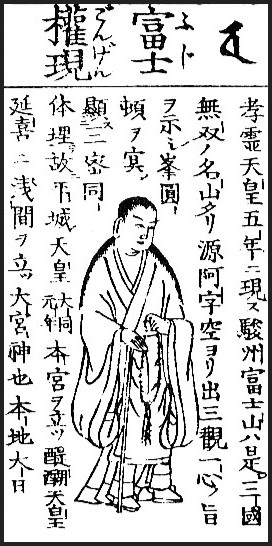 富士
ふじ
權現
ごんげん
孝霊天皇五年ニ現ス駿州富士山ハ是三國
無双ノ名山タリ源阿字空ヨリ出三觀一心ノ旨
ヲ示シ峯圓
頓ヲ冥
顯ス三密同
体理故平城天皇大同元年本宮ヲ立ツ醍醐天皇
延喜ニ浅間ヲ立ツ大宮神也本地大日